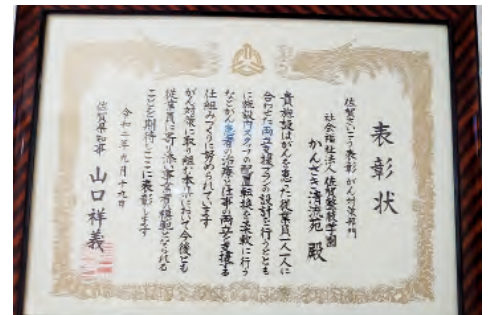 表彰状
佐賀さいこう表彰 がん対策部門
社会福祉法人 佐賀整肢学園
かんざき清流苑 殿
貴施設はがんを患った従業員一人一人に
合わせた両立支援プランの設計を行うととも
に施設内スタッフの配置転換を柔軟に行う
などがん患者の治療と仕事の両立を支援する
仕組みづくりに努められています
がん対策に取り組む事業所として今後とも
従業員に寄り添い事業者の模範となられる
ことを期待しここに表彰します
令和二年九月十九日
佐賀県知事 山口祥義